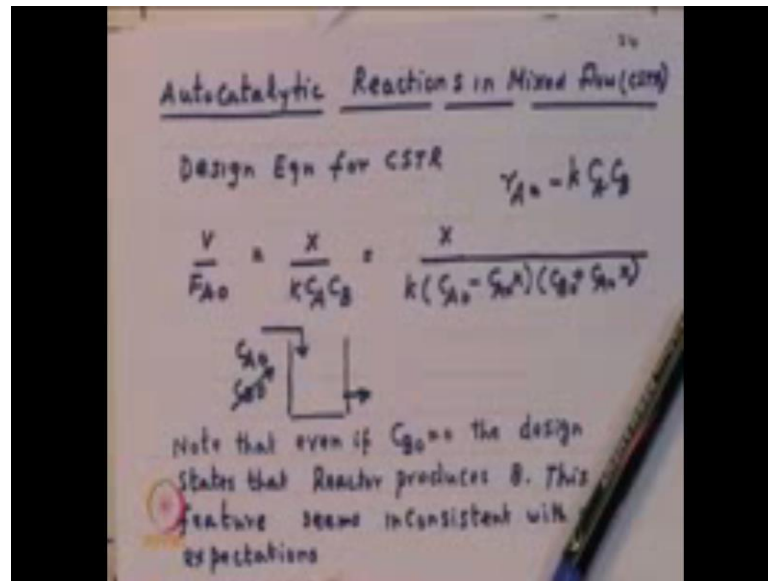 24
Autocatalytic Reactions in Mixed flow (CSTR)
Design Eqn for CSTR
r_A = - k C_A C_B
V/F_A0 = X/(k C_A C_B) = X/(k (C_A0 - C_A0 X) (C_B0 + C_A0 X))
C_A0
C_B0
Note that even if C_B0 = 0 the design
states that Reactor produces B. This
feature seems inconsistent with
expectations